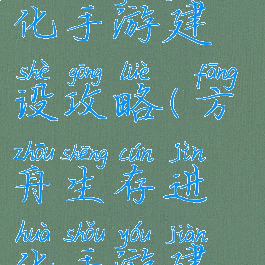 化手游建
shè gōng lüè fāng
设攻略(方
zhōu shēng cún jìn
舟生存进
huà shǒu yóu jiàn
化手游建